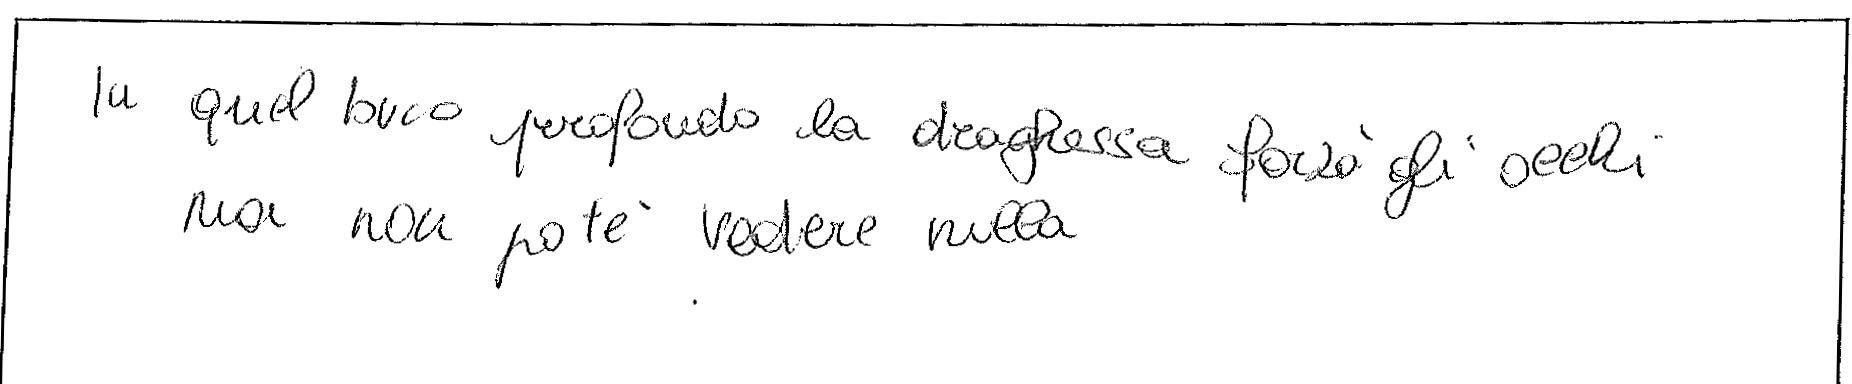 In quel buco profondo la draghessa forzò gli occhi
ma non potè vedere nulla